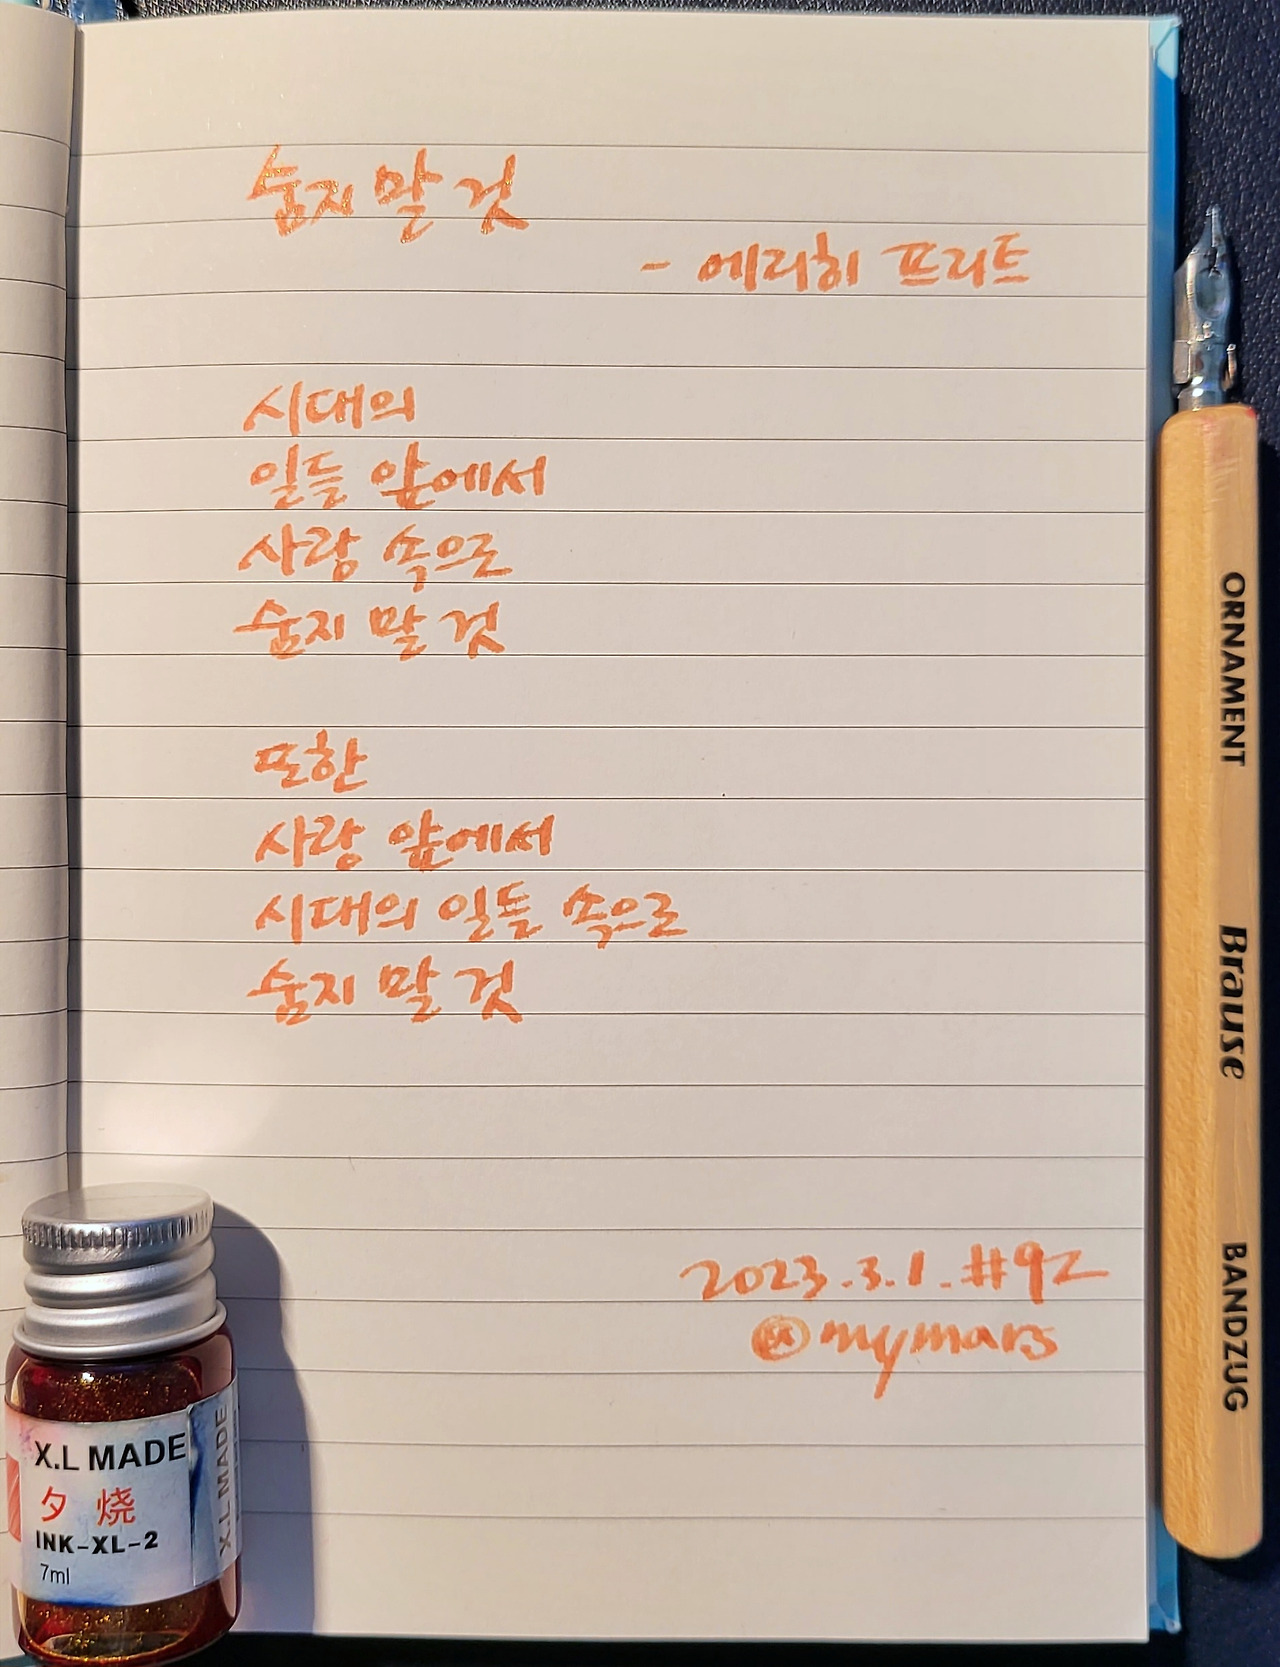 숨지 말 것
- 에리히 프리트
시대의
일들 앞에서
사랑 속으로
숨지 말 것
또한
사랑 앞에서
시대의 일들 속으로
숨지 말 것
2023.3.1. #92
@mymars
X.L MADE
夕 烧
INK-XL-2
7ml
X.L MADE
ORNAMENT
Brause
BANDZUG